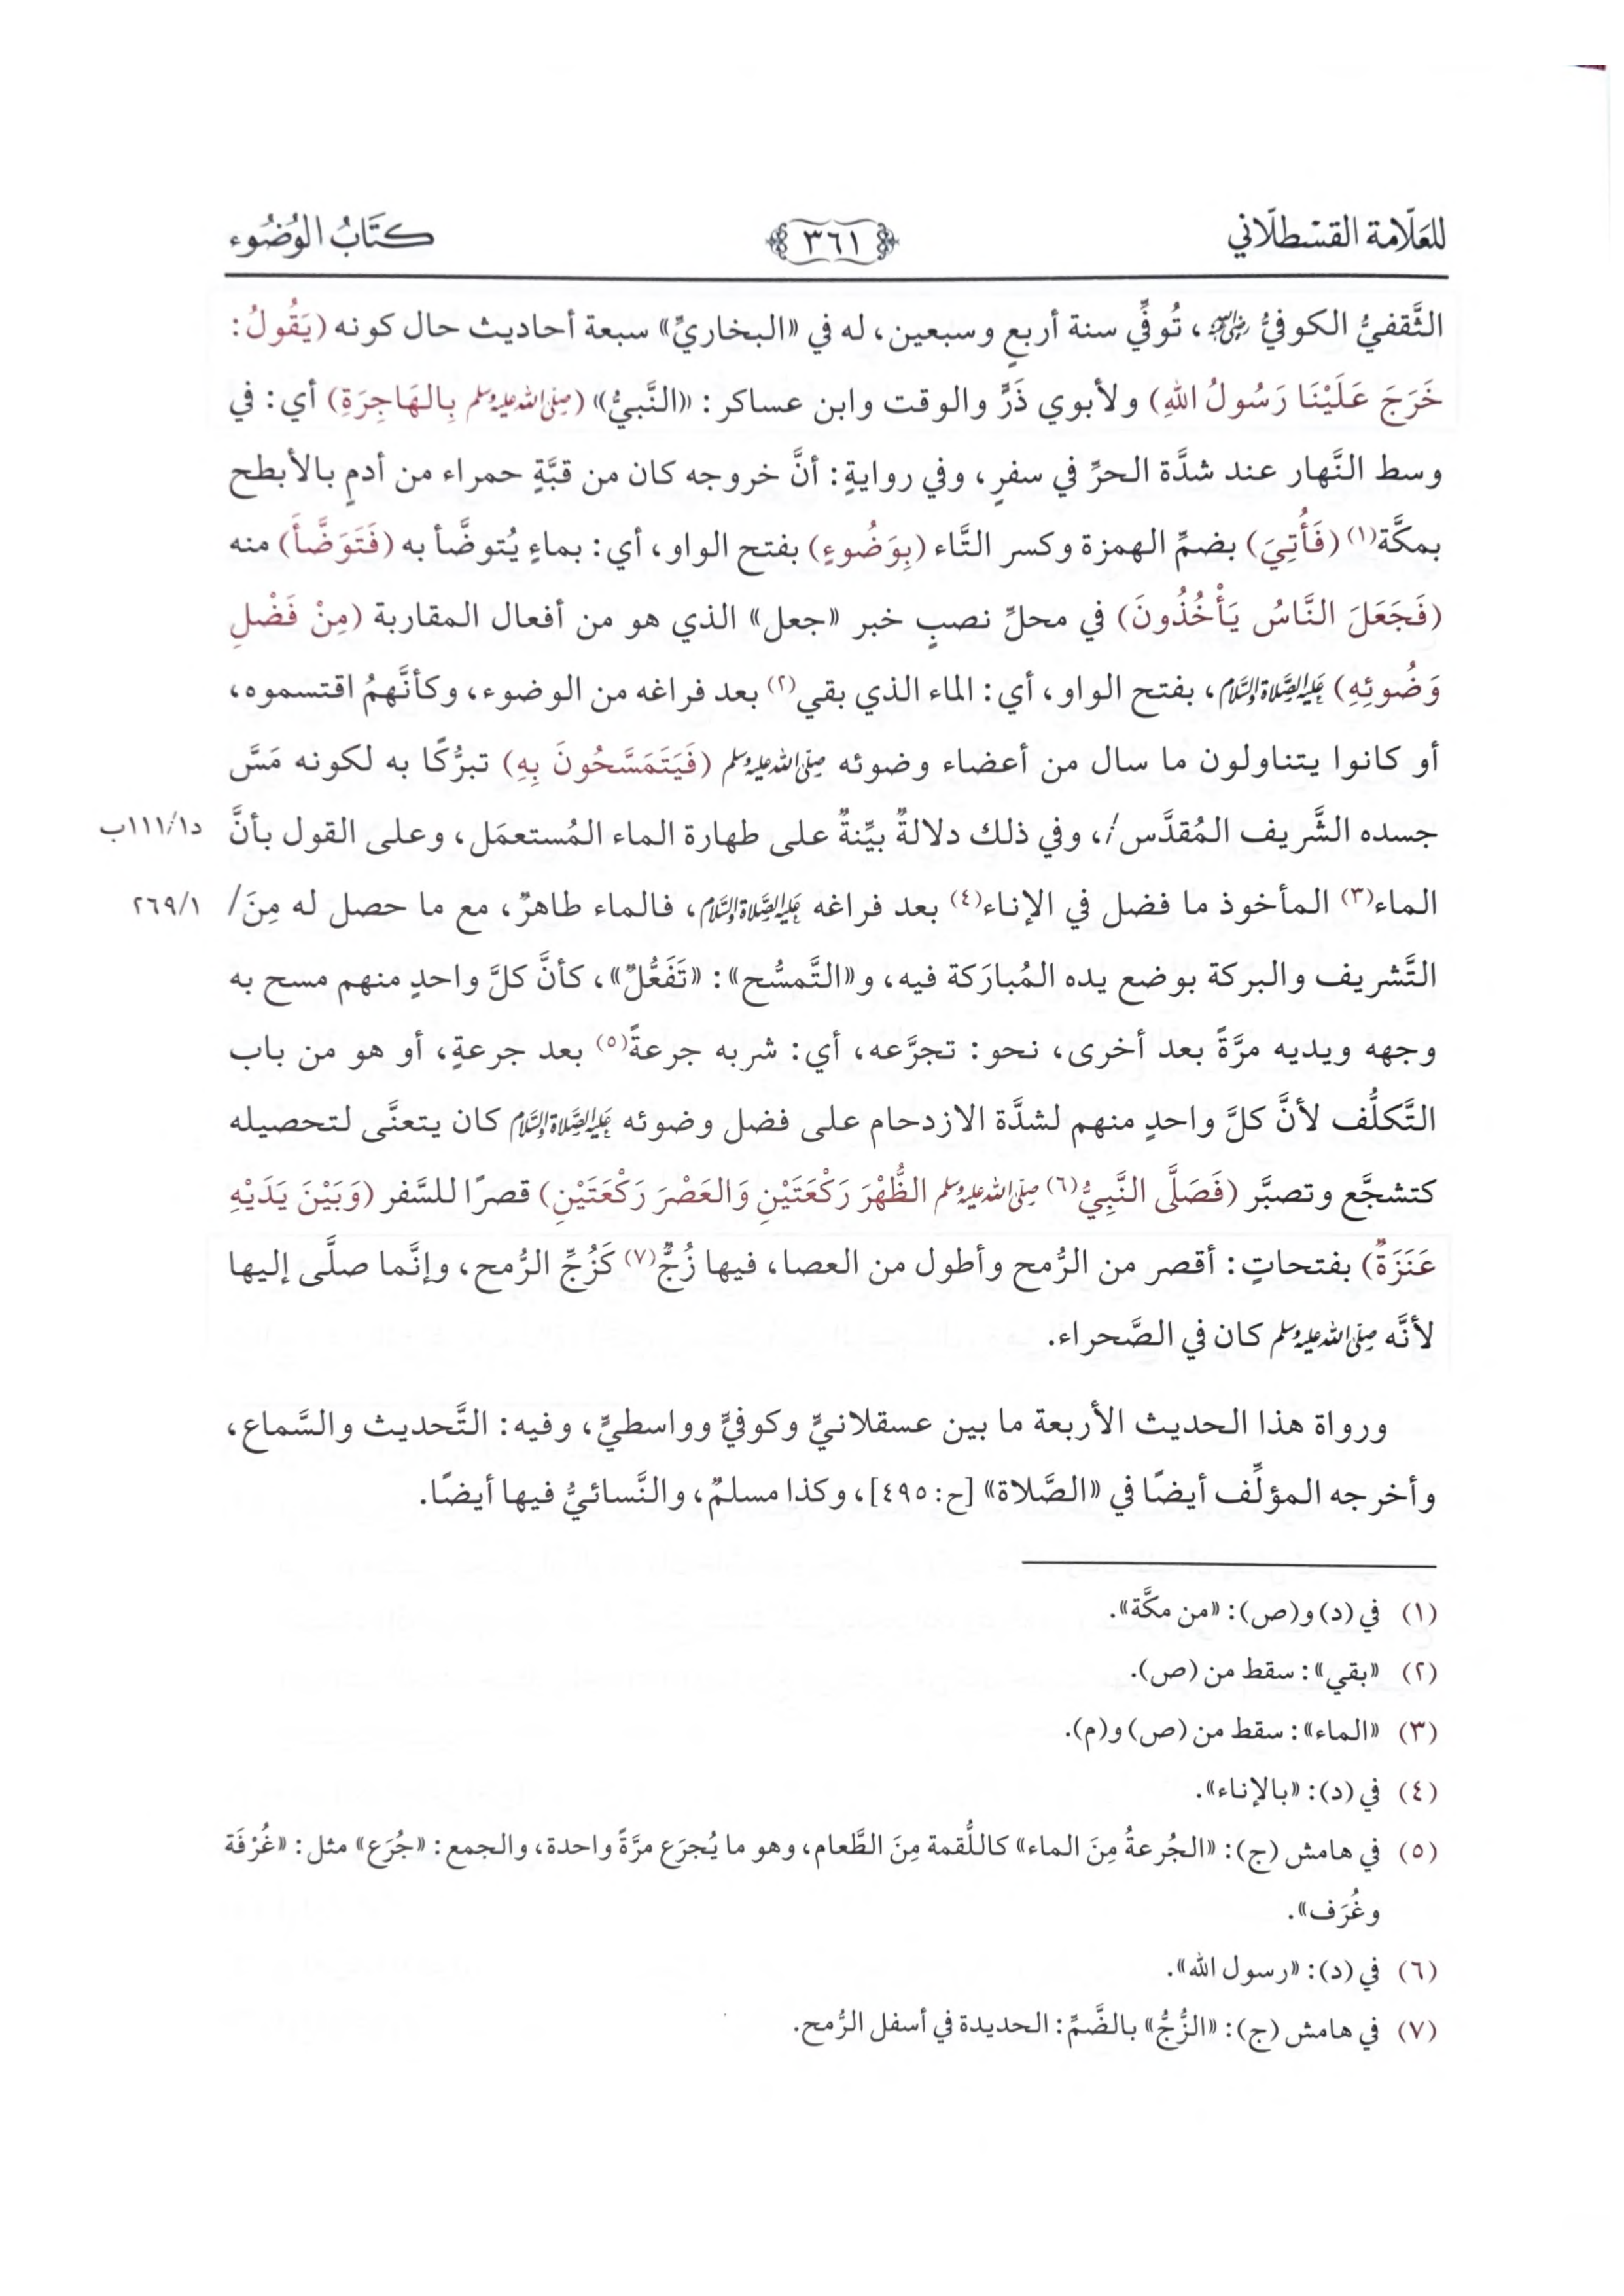 للعلّامة القسْطلّاني ﴿٣٦١﴾ كتَابُ الوُضُوء
الثَّقفيُّ الكوفيُّ ﵁، تُوفِّي سنة أربعٍ وسبعين، له في «البخاريِّ» سبعة أحاديث حال كونه (يَقُولُ:
خَرَجَ عَلَيْنَا رَسُولُ اللهِ) ولأبوي ذَرٍّ والوقت وابن عساكر: «النَّبيُّ» (صلى الله عليه وسلم بِالهَاجِرَةِ) أي: في
وسط النَّهار عند شدَّة الحرِّ في سفرٍ، وفي روايةٍ: أنَّ خروجه كان من قبَّةٍ حمراء من أدمٍ بالأبطح
بمكَّة(١) (فَأُتِيَ) بضمِّ الهمزة وكسر التَّاء (بِوَضُوءٍ) بفتح الواو، أي: بماءٍ يُتوضَّأ به (فَتَوَضَّأَ) منه
(فَجَعَلَ النَّاسُ يَأْخُذُونَ) في محلِّ نصبٍ خبر «جعل» الذي هو من أفعال المقاربة (مِنْ فَضْلِ
وَضُوئِهِ) عليه الصلاة والسلام، بفتح الواو، أي: الماء الذي بقي(٢) بعد فراغه من الوضوء، وكأنَّهمُ اقتسموه،
أو كانوا يتناولون ما سال من أعضاء وضوئه صلى الله عليه وسلم (فَيَتَمَسَّحُونَ بِهِ) تبرُّكًا به لكونه مَسَّ
جسده الشَّريف المُقدَّس/، وفي ذلك دلالةٌ بيِّنةٌ على طهارة الماء المُستعمَل، وعلى القول بأنَّ د١١١/١ب
الماء(٣) المأخوذ ما فضل في الإناء(٤) بعد فراغه عليه الصلاة والسلام، فالماء طاهرٌ، مع ما حصل له مِنَ/ ٢٦٩/١
التَّشريف والبركة بوضع يده المُبارَكة فيه، و«التَّمسُّح»: «تَفَعُّلٌ»، كأنَّ كلَّ واحدٍ منهم مسح به
وجهه ويديه مرَّةً بعد أخرى، نحو: تجرَّعه، أي: شربه جرعةً(٥) بعد جرعةٍ، أو هو من باب
التَّكلُّف لأنَّ كلَّ واحدٍ منهم لشدَّة الازدحام على فضل وضوئه عليه الصلاة والسلام كان يتعنَّى لتحصيله
كتشجَّع وتصبَّر (فَصَلَّى النَّبِيُّ(٦) صلى الله عليه وسلم الظُّهْرَ رَكْعَتَيْنِ وَالعَصْرَ رَكْعَتَيْنِ) قصرًا للسَّفر (وَبَيْنَ يَدَيْهِ
عَنَزَةٌ) بفتحاتٍ: أقصر من الرُّمح وأطول من العصا، فيها زُجٌّ(٧) كَزُجِّ الرُّمح، وإنَّما صلَّى إليها
لأنَّه صلى الله عليه وسلم كان في الصَّحراء.
ورواة هذا الحديث الأربعة ما بين عسقلانيٍّ وكوفيٍّ وواسطيٍّ، وفيه: التَّحديث والسَّماع،
وأخرجه المؤلِّف أيضًا في «الصَّلاة» [ح: ٤٩٥]، وكذا مسلمٌ، والنَّسائيُّ فيها أيضًا.
(١) في (د) و(ص): «من مكَّة».
(٢) «بقي»: سقط من (ص).
(٣) «الماء»: سقط من (ص) و(م).
(٤) في (د): «بالإناء».
(٥) في هامش (ج): «الجُرعةُ مِنَ الماء» كاللُّقمة مِنَ الطَّعام، وهو ما يُجرَع مرَّةً واحدة، والجمع: «جُرَع» مثل: «غُرْفَة
وغُرَف».
(٦) في (د): «رسول الله».
(٧) في هامش (ج): «الزُّجُّ» بالضَّمِّ: الحديدة في أسفل الرُّمح.